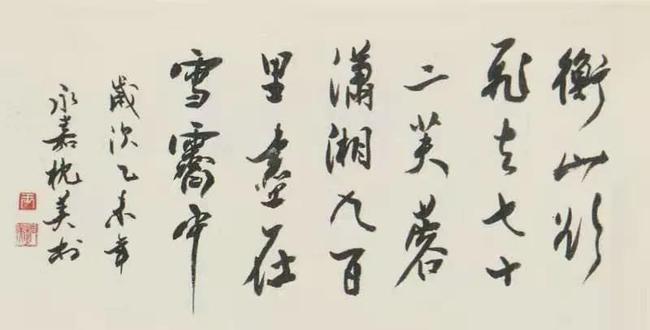 衡山欲
飛去七十
二芙蓉
瀟湘九百
里盡在
雪霽中
歲次乙未年
永嘉枕美